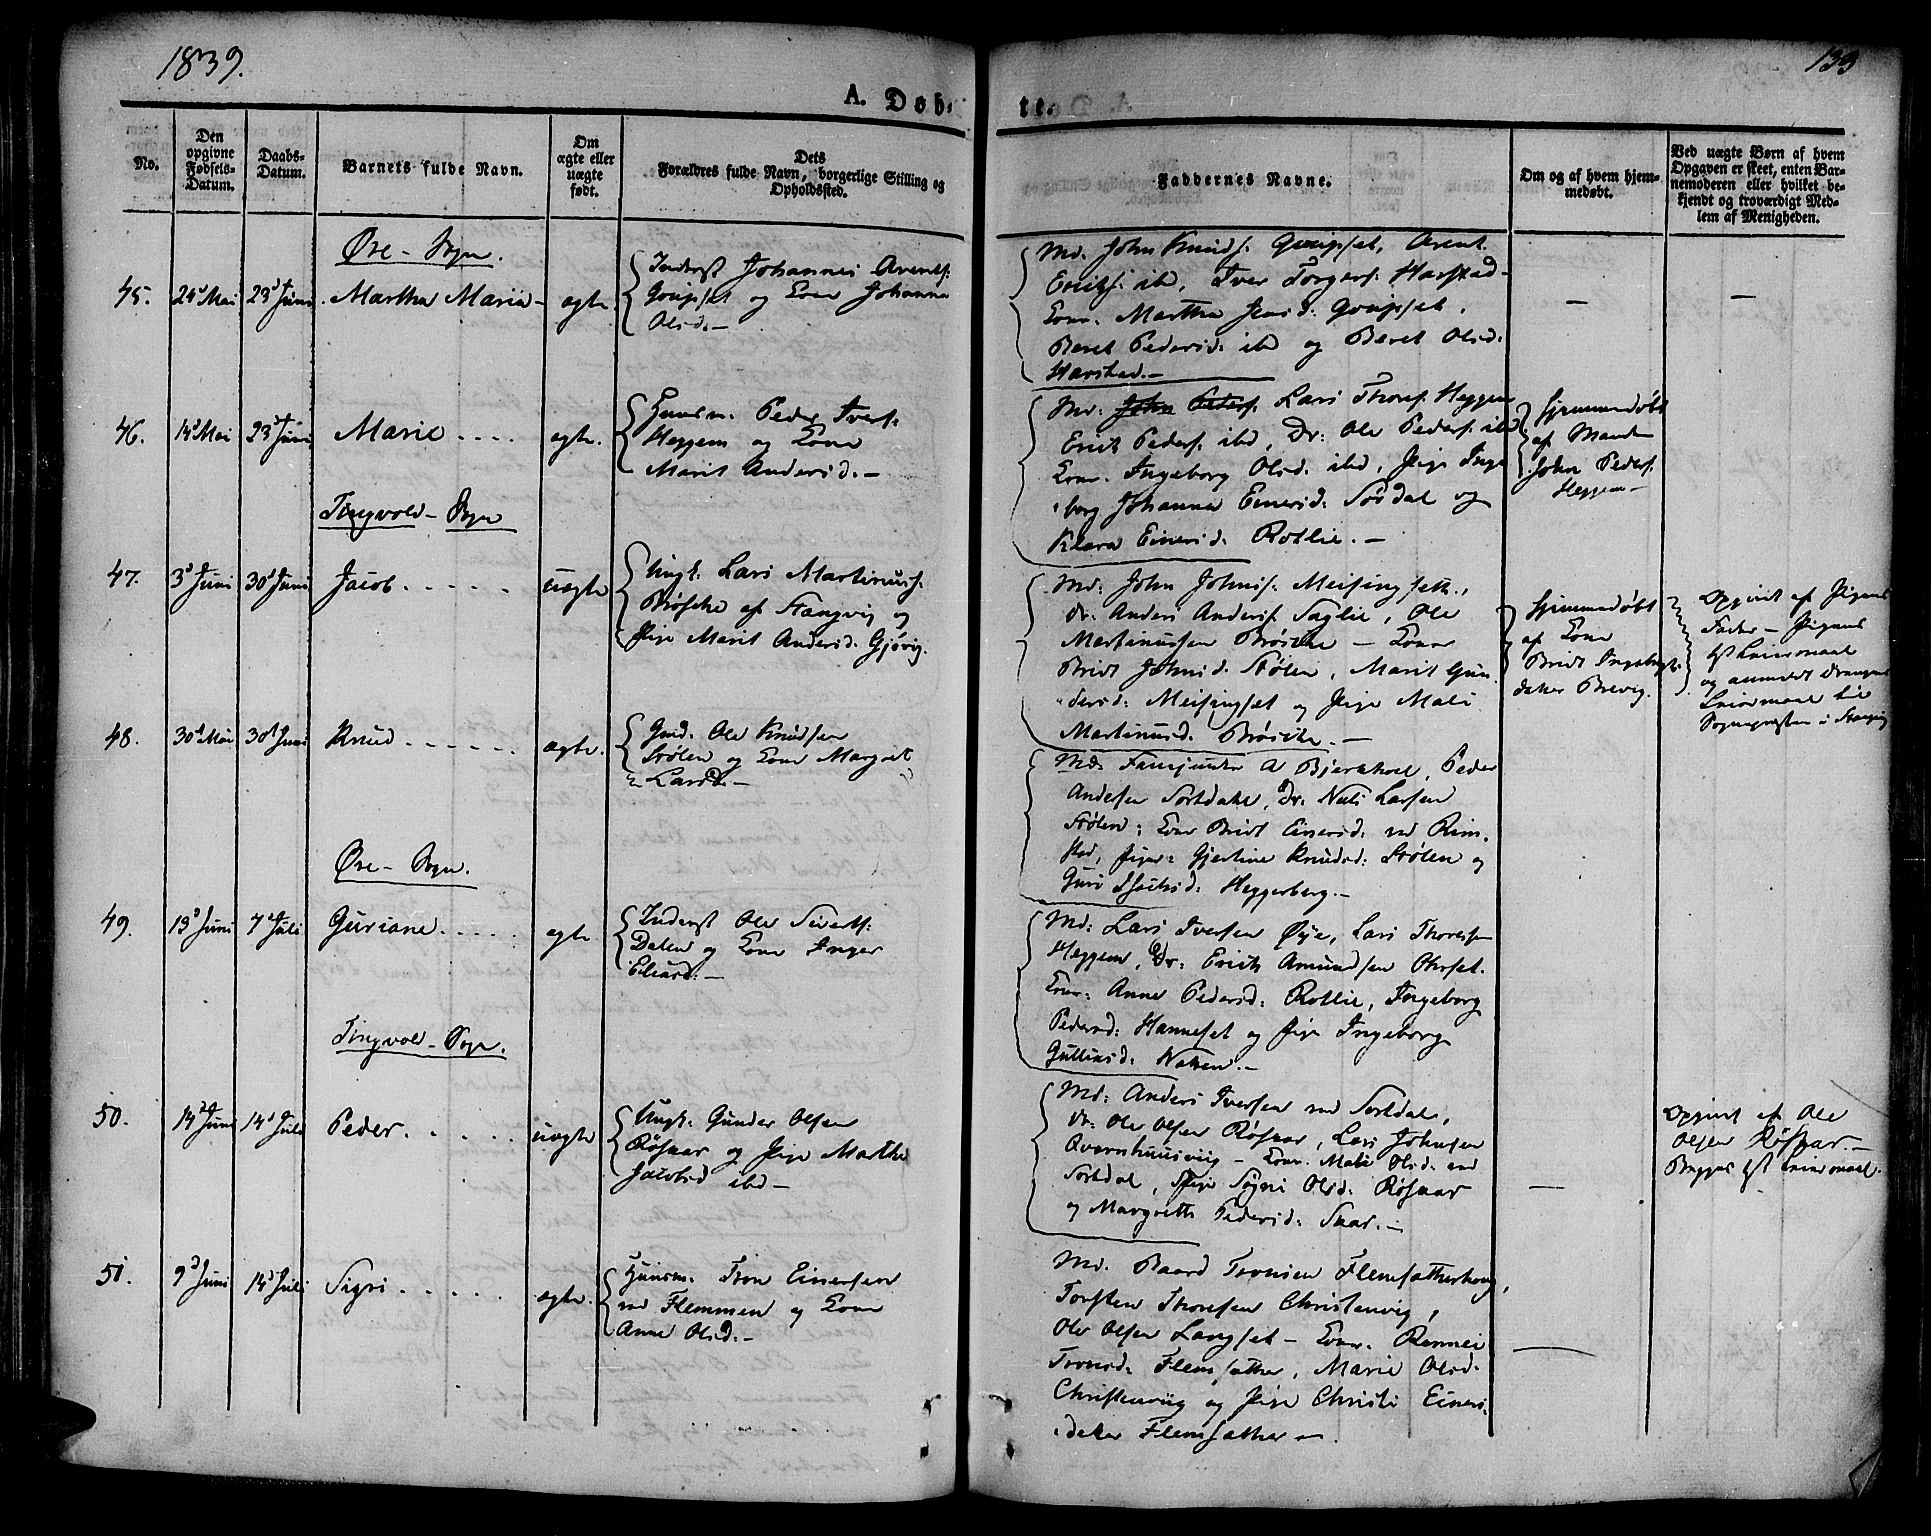 1839.
133
A. Døb-
te.
No.
Den
opgivne
Fødsels-
Datum.
Daabs-
Datum.
Barnets fulde Navn.
Om
ægte eller
uægte
født.
Dets
Forældres fulde Navn, borgerlige Stilling og
Opholdssted.
Faddernes Navne.
Om og af hvem hjem-
medøbt.
Ved uægte Børn af hvem
Opgaven er skeet, enten Bar-
nemoderen eller hvilket be-
kjendt og troværdigt Med-
lem af Menigheden.
Øre - Sogn.
45.
24d Mai
23d Juni
Martha Maria -
ægte
Inderst Johannes Arents:
og Kone Johanna
Olsd. -
Md. John Knuds. Arent
Ericks. ibd, Iver Torgers. Harstad -
Kone. Martha Jensd.
Beret Pedersd. ibd og Beret Olsd.
Harstad. -
—
—
46.
14d Mai
23d Juni
Marie ....
ægte.
Huusm. Peder Ivers.
Heggem og Kone
Marit Andersd. -
Md: John Peders. Lars Thores. Heggem
Erick Peders. ibd, Dr: Ole Peders. ibd
Kone. Ingeborg Olsd. ibd, Pige Inge
borg Johanna Einersd. Sordal og
Klara Einersd. Rotlie. -
Hjemmedøbt
af Manden
John Peders.
Heggem -
Tingvold - Sogn
47.
3d Juni
30d Juni
Jacob.....
uægte
Ungk. Lars Martinus.
Brøske af Stangvig og
Pige Marit Andersd. Gjøvig.
Md: John Johns. Meisingseth.,
Dr: Anders Anders. Saglie, Ole
Martinussen Brøske - Kone
Bridt Johnsd. Stølen, Marit Gun
dersd: Meisingset og Pige Mali
Martinusd. Brøske. -
Hjemmedøbt
af Kone
Bridt Ingebrigts
datter Brevig.
Opgivet af Pigens
Fader - Pigens
1st Leiermaal
og anmeldt Drengens
Leiermaal til
Sognepræsten i Stangvig
48.
30d Mai
30d Juni
Knud ......
ægte.
Gmd. Ole Knudsen
Stølen og Kone Margret
Larsd. -
Md: A Bjerkhoel, Peder
Andersen Sortdahl, Dr. Nils Larsen
Stølen; Kone Bridt Einersd: ved Rim-
stad, Piger: Gjertine Knudsd: Stølen og
Guri Heggerberg. -
Øre - Sogn.
49.
13d Juni
7d Juli
Guriane.....
ægte
Inderst Ole Siverts:
Dalen og Kone Inger
Eliasd: -
Md: Lars Iversen Øye, Lars Thoresen
Heggem, Dr: Erick Amundsen
Kone: Anne Pedersd: Rotlie, Ingeborg
Pedersd: Hanneset og Pige Ingeborg
Gulliksd: -
Tingvold - Sogn.
50.
14d Juni
14d Juli
Peder......
uægte
Ungk. Gunder Olsen
Røsnar og Pige Marthe
Jacobsd ibd -
Md: Anders Iversen ved Sortdal,
Dr: Ole Olsen Røsnar, Lars Johnsen
Qvernhuusviig - Kone. Mali Olsd. ved
Sortdal, Pige Sigri Olsd: Røsnar
og Margrethe Pedersd: Skar. -
—
Opgivet af Ole
Olsen Røsnar. -
Begges 1st Leiermaal.
51.
9d Juni
14d Juli
Sigri.....
ægte.
Huusm. Tron Einersen
ved Flemmen og Kone
Anne Olsd. -
Md. Baard Tronsen Flemsætherhoug,
Torsten Thoresen Christenvig,
Ole Olsen Langset - Kone. Rønnei
Tronsd: Flemsæther, Marie Olsd.
Christenviig og Pige Christi Einers
datter Flemsæther -.
—